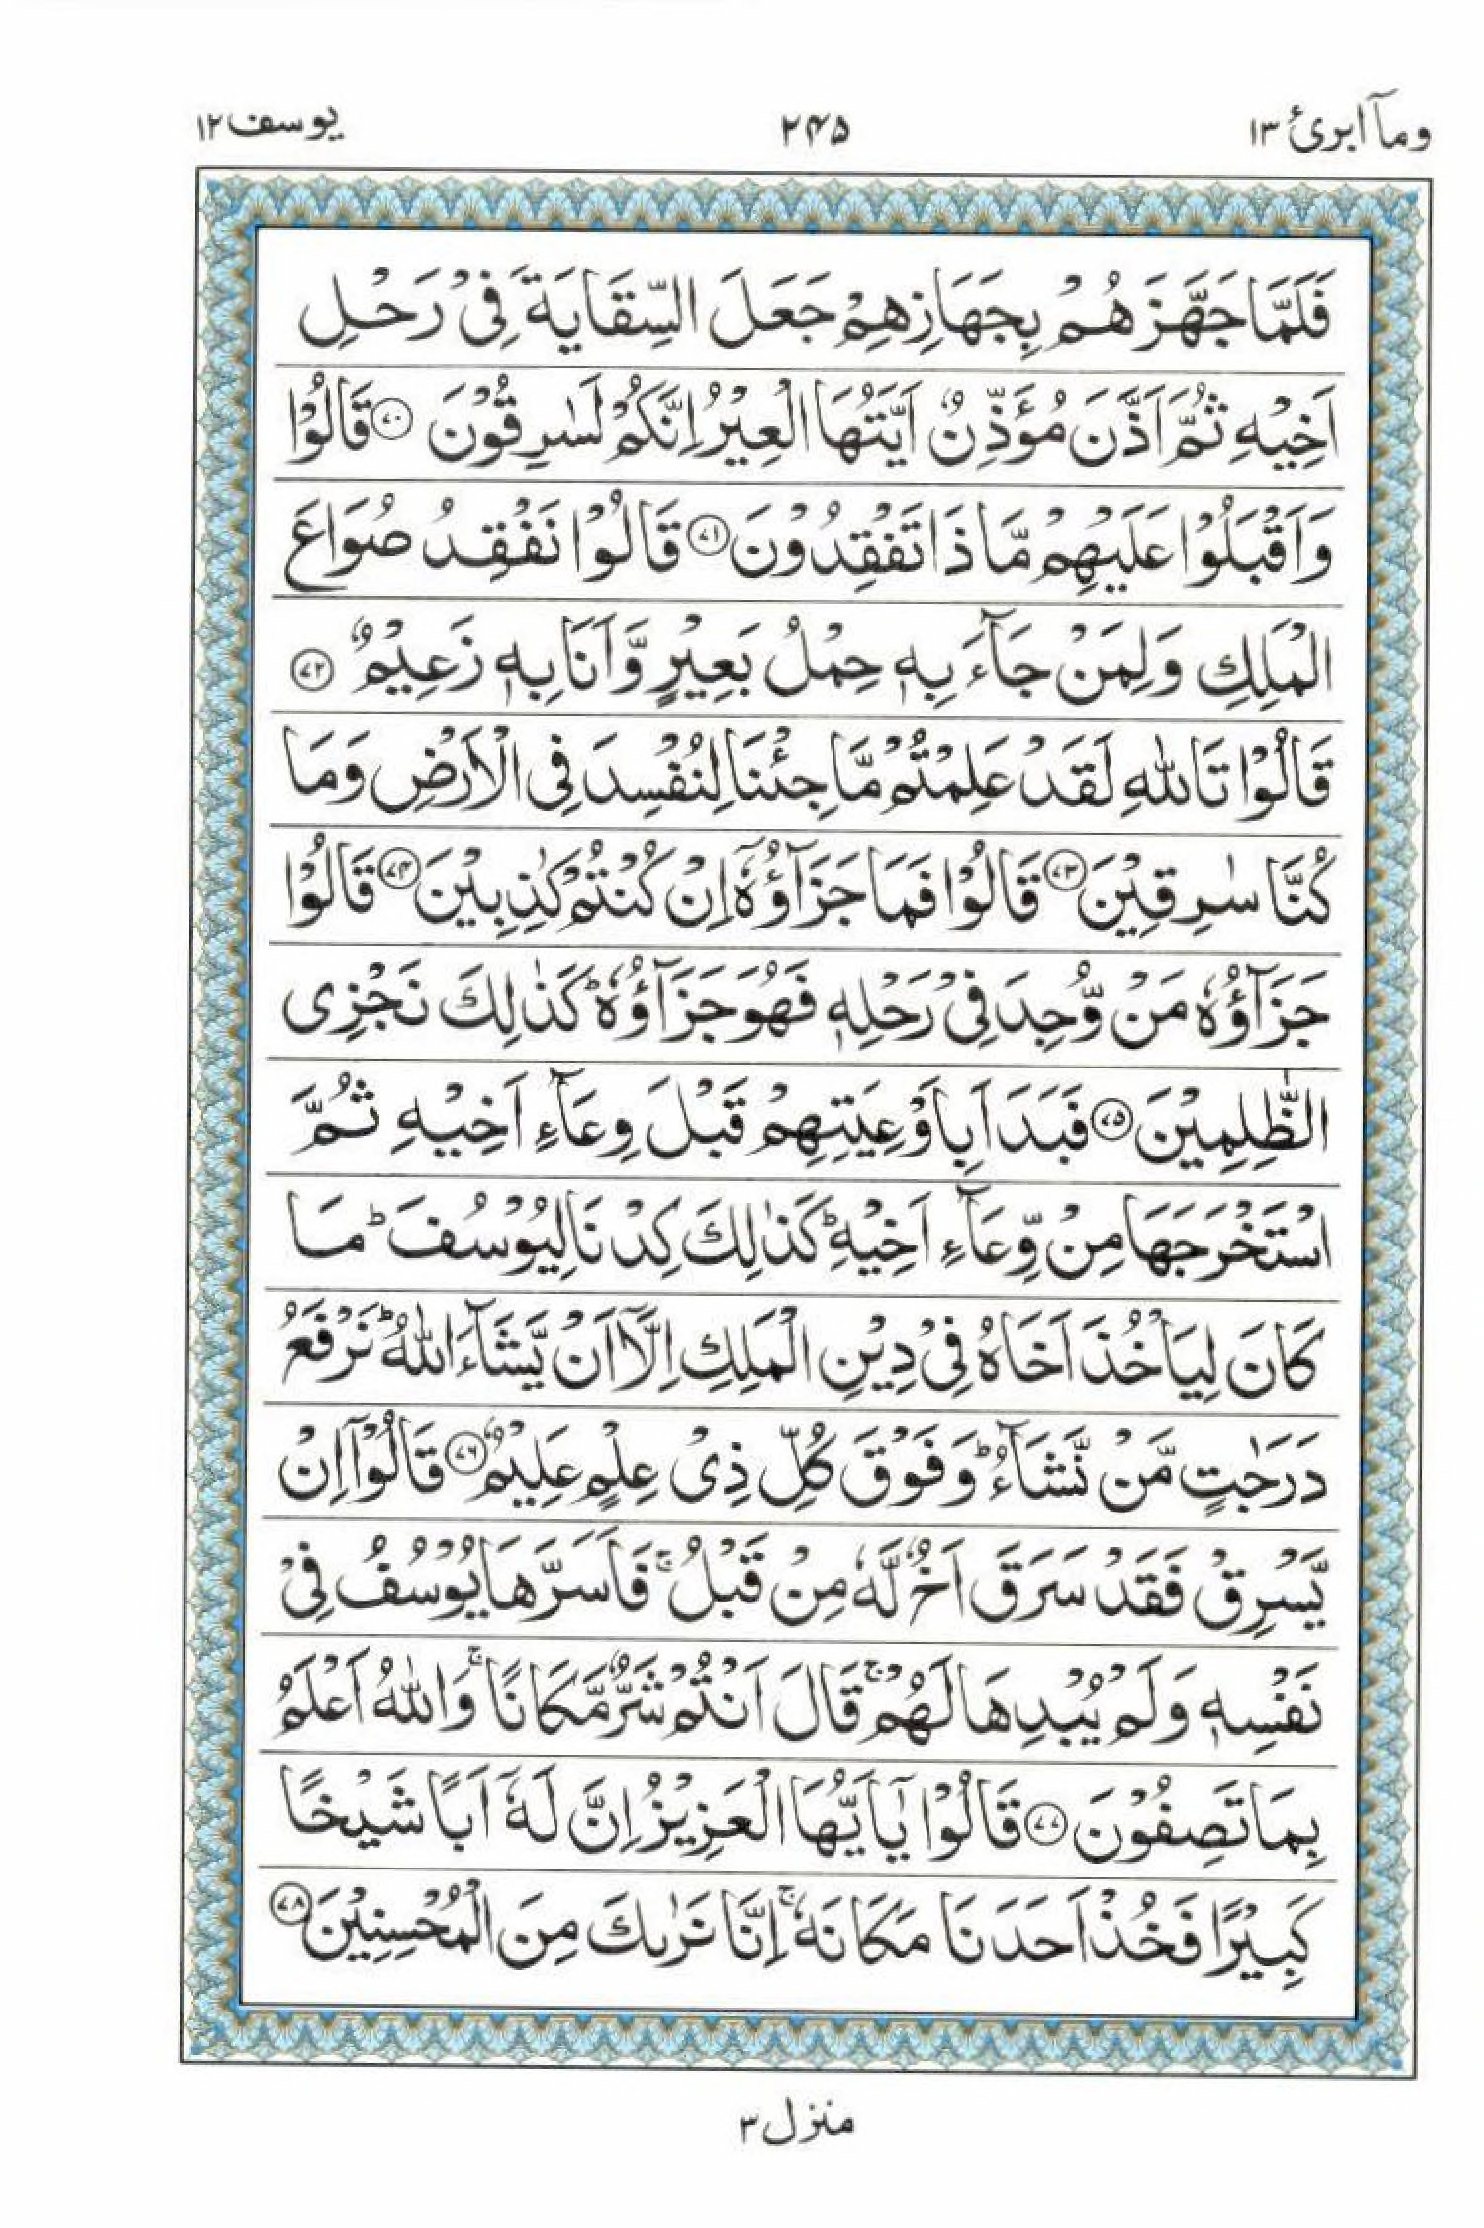 ومآ ابرئ ١٣
٢٤٥
يوسف ١٢
فَلَمَّا جَهَّزَهُمْ بِجَهَازِهِمْ جَعَلَ السِّقَايَةَ فِيْ رَحْلِ
اَخِيْهِ ثُمَّ اَذَّنَ مُؤَذِّنٌ اَيَّتُهَا الْعِيْرُ اِنَّكُمْ لَسٰرِقُوْنَ ﴿٧٠﴾ قَالُوْا
وَاَقْبَلُوْا عَلَيْهِمْ مَّاذَا تَفْقِدُوْنَ ﴿٧١﴾ قَالُوْا نَفْقِدُ صُوَاعَ
الْمَلِكِ وَلِمَنْ جَآءَ بِهٖ حِمْلُ بَعِيْرٍ وَّاَنَا بِهٖ زَعِيْمٌ ﴿٧٢﴾
قَالُوْا تَاللّٰهِ لَقَدْ عَلِمْتُمْ مَّا جِئْنَا لِنُفْسِدَ فِي الْاَرْضِ وَمَا
كُنَّا سٰرِقِيْنَ ﴿٧٣﴾ قَالُوْا فَمَا جَزَآؤُهٗٓ اِنْ كُنْتُمْ كٰذِبِيْنَ ﴿٧٤﴾ قَالُوْا
جَزَآؤُهٗ مَنْ وُّجِدَ فِيْ رَحْلِهٖ فَهُوَ جَزَآؤُهٗ ؕ كَذٰلِكَ نَجْزِي
الظّٰلِمِيْنَ ﴿٧٥﴾ فَبَدَاَ بِاَوْعِيَتِهِمْ قَبْلَ وِعَآءِ اَخِيْهِ ثُمَّ
اسْتَخْرَجَهَا مِنْ وِّعَآءِ اَخِيْهِ ؕ كَذٰلِكَ كِدْنَا لِيُوْسُفَ ؕ مَا
كَانَ لِيَاْخُذَ اَخَاهُ فِيْ دِيْنِ الْمَلِكِ اِلَّآ اَنْ يَّشَآءَ اللّٰهُ ؕ نَرْفَعُ
دَرَجٰتٍ مَّنْ نَّشَآءُ ؕ وَفَوْقَ كُلِّ ذِيْ عِلْمٍ عَلِيْمٌ ﴿٧٦﴾ قَالُوْٓا اِنْ
يَّسْرِقْ فَقَدْ سَرَقَ اَخٌ لَّهٗ مِنْ قَبْلُ ۚ فَاَسَرَّهَا يُوْسُفُ فِيْ
نَفْسِهٖ وَلَمْ يُبْدِهَا لَهُمْ ۚ قَالَ اَنْتُمْ شَرٌّ مَّكَانًا ۚ وَاللّٰهُ اَعْلَمُ
بِمَا تَصِفُوْنَ ﴿٧٧﴾ قَالُوْا يٰٓاَيُّهَا الْعَزِيْزُ اِنَّ لَهٗٓ اَبًا شَيْخًا
كَبِيْرًا فَخُذْ اَحَدَنَا مَكَانَهٗ ۚ اِنَّا نَرٰىكَ مِنَ الْمُحْسِنِيْنَ ﴿٧٨﴾
منزل ٣